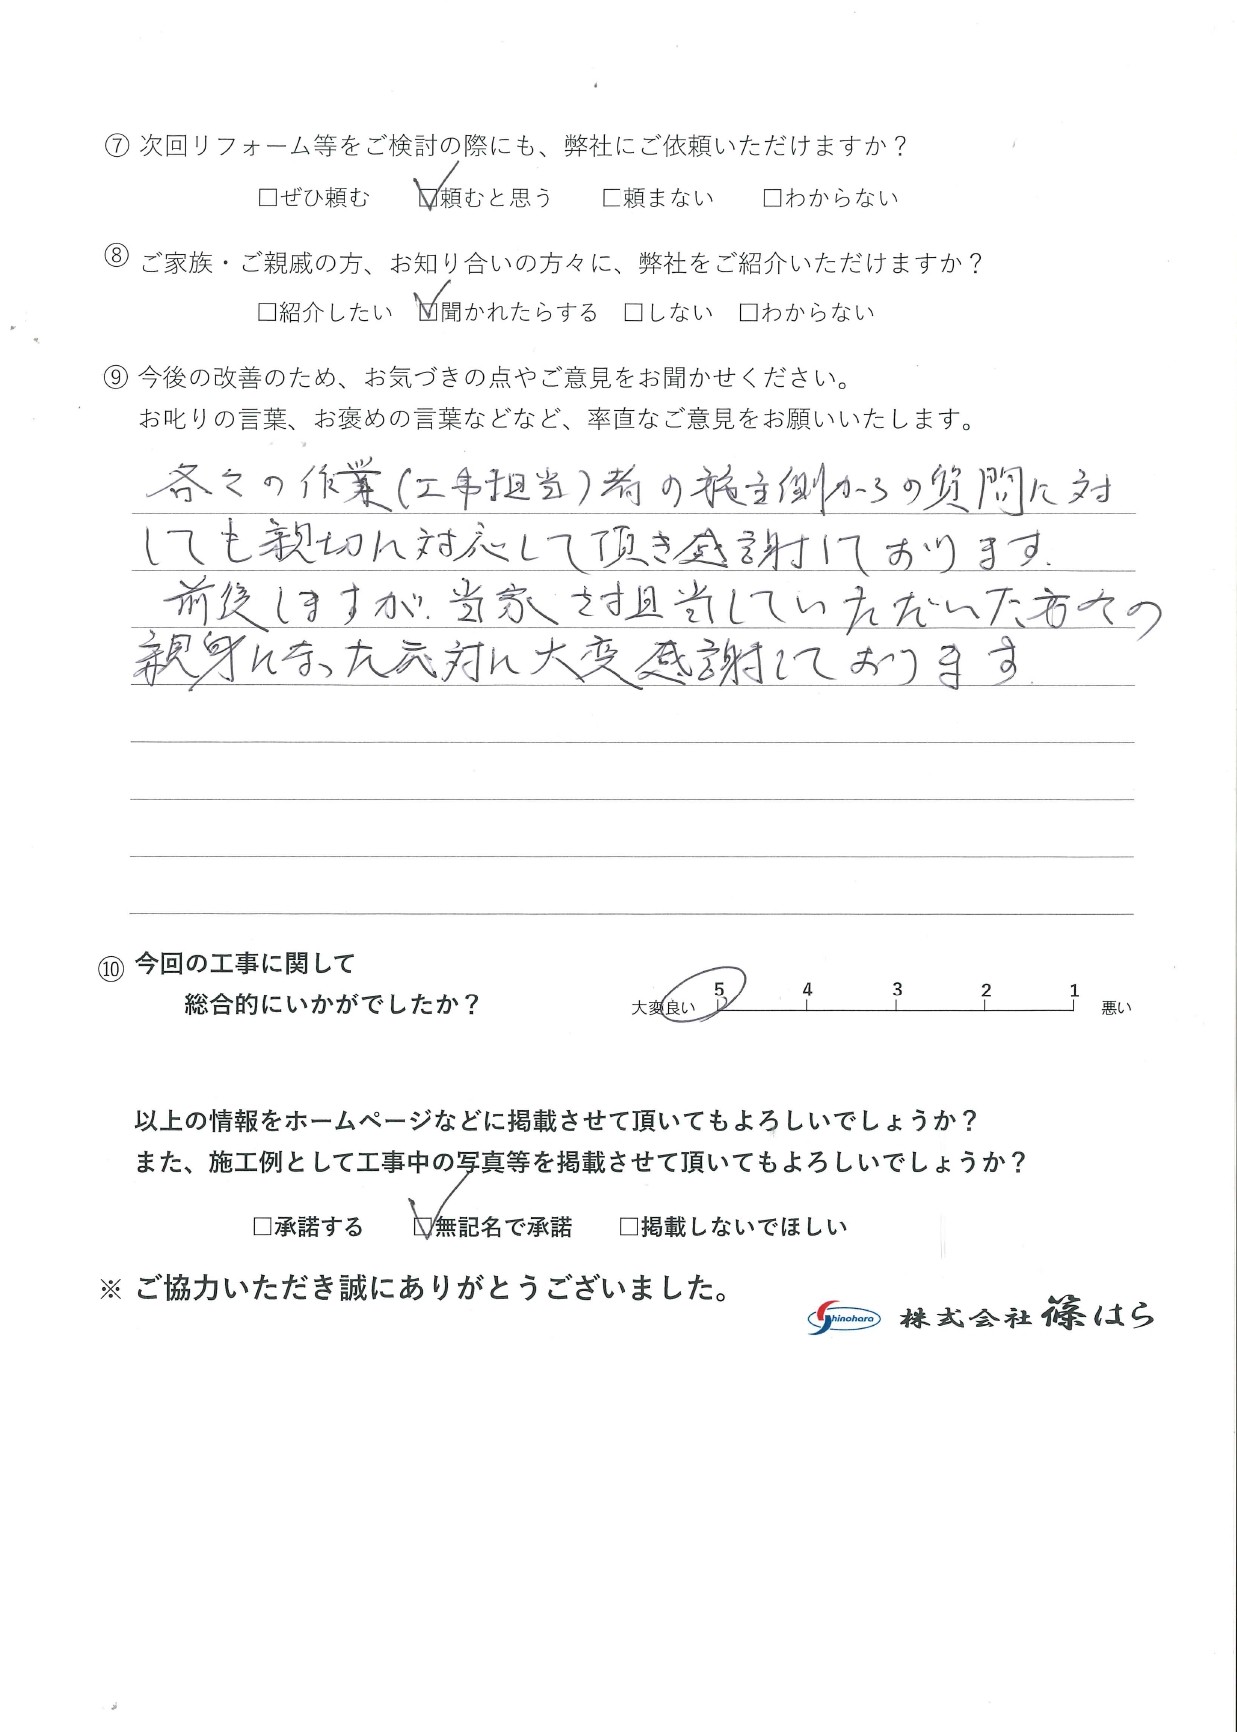 ⑦ 次回リフォーム等をご検討の際にも、弊社にご依頼いただけますか？
□ぜひ頼む ☑頼むと思う □頼まない □わからない
⑧ ご家族・ご親戚の方、お知り合いの方々に、弊社をご紹介いただけますか？
□紹介したい ☑聞かれたらする □しない □わからない
⑨ 今後の改善のため、お気づきの点やご意見をお聞かせください。
お叱りの言葉、お褒めの言葉などなど、率直なご意見をお願いいたします。
各々の作業(工事担当)者の施主側からの質問に対
しても親切に対応して頂き感謝しております.
前後しますが.当家を担当していただいた方々の
親身になった応対に大変感謝しております.
⑩ 今回の工事に関して
総合的にいかがでしたか？
大変良い 5 4 3 2 1 悪い
以上の情報をホームページなどに掲載させて頂いてもよろしいでしょうか？
また、施工例として工事中の写真等を掲載させて頂いてもよろしいでしょうか？
□承諾する ☑無記名で承諾 □掲載しないでほしい
※ ご協力いただき誠にありがとうございました。
Shinohara 株式会社 篠はら